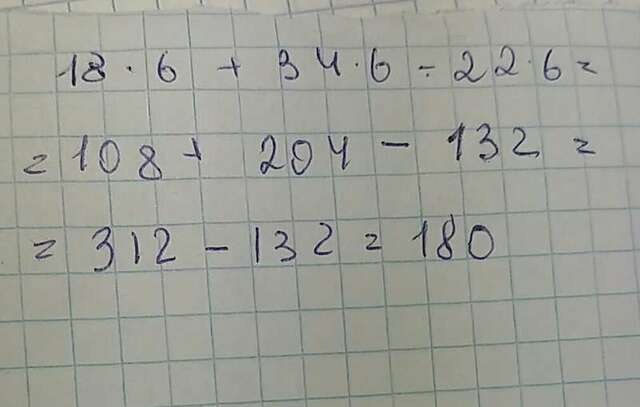 18 · 6 + 34 · 6 - 22 · 6 =
= 108 + 204 - 132 =
= 312 - 132 = 180